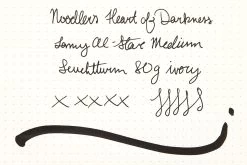 Noodlers Heart of Darkness
Lamy Al-Star Medium
Leuchtturm 80g ivory
X XXXX